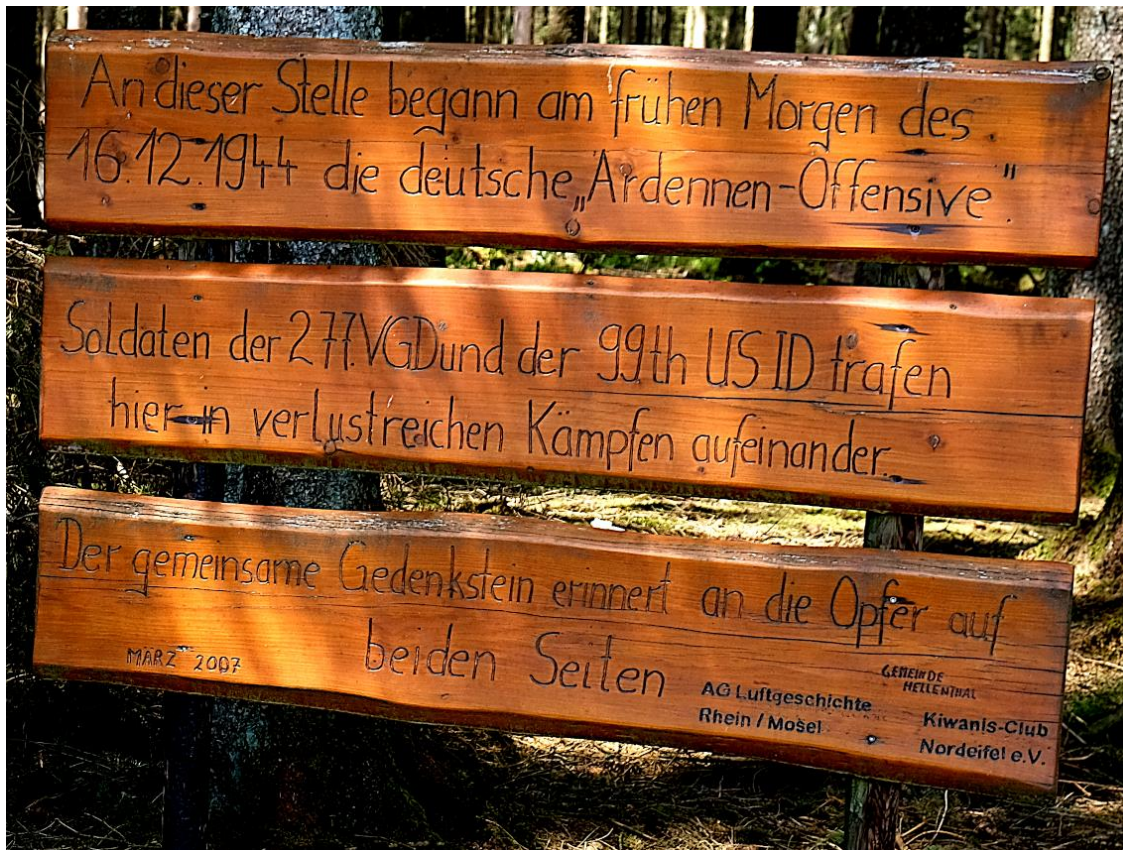 An dieser Stelle begann am frühen Morgen des
16.12.1944 die deutsche „Ardennen-Offensive".
Soldaten der 277.VGD und der 99th US ID trafen
hier in verlustreichen Kämpfen aufeinander.
Der gemeinsame Gedenkstein erinnert an die Opfer auf
beiden Seiten
MÄRZ 2007
AG Luftgeschichte
Rhein / Mosel
GEMEINDE
HELLENTHAL
Kiwanis-Club
Nordeifel e.V.